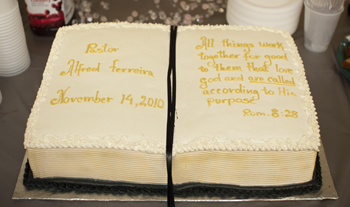 Pastor
Alfred Ferreira
November 14, 2010
All things work
together for good
to them that love
god and are called
according to His
purpose
Rum. 8:28